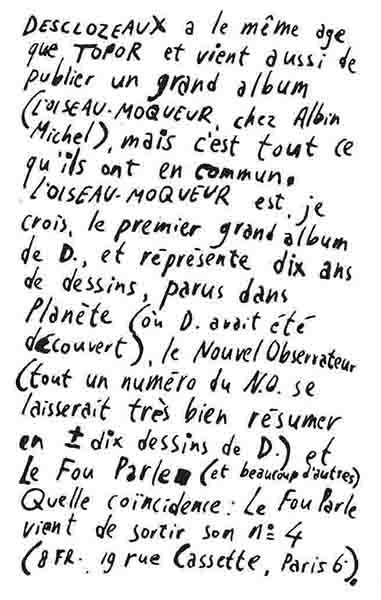 DESCLOZEAUX a le même age
que TOPOR et vient aussi de
publier un grand album
(L'OISEAU-MOQUEUR, chez Albin
Michel), mais c'est tout ce
qu'ils ont en commun.
L'OISEAU-MOQUEUR est, je
crois, le premier grand album
de D., et réprésente dix ans
de dessins, parus dans
Planète (où D. avait été
découvert), le Nouvel Observateur
(tout un numéro du N.O. se
laisserait très bien résumer
en ± dix dessins de D.) et
Le Fou Parle (et beaucoup d'autres)
Quelle coïncidence: Le Fou Parle
vient de sortir son nº 4
(8 FR. 19 rue Cassette, Paris 6.).